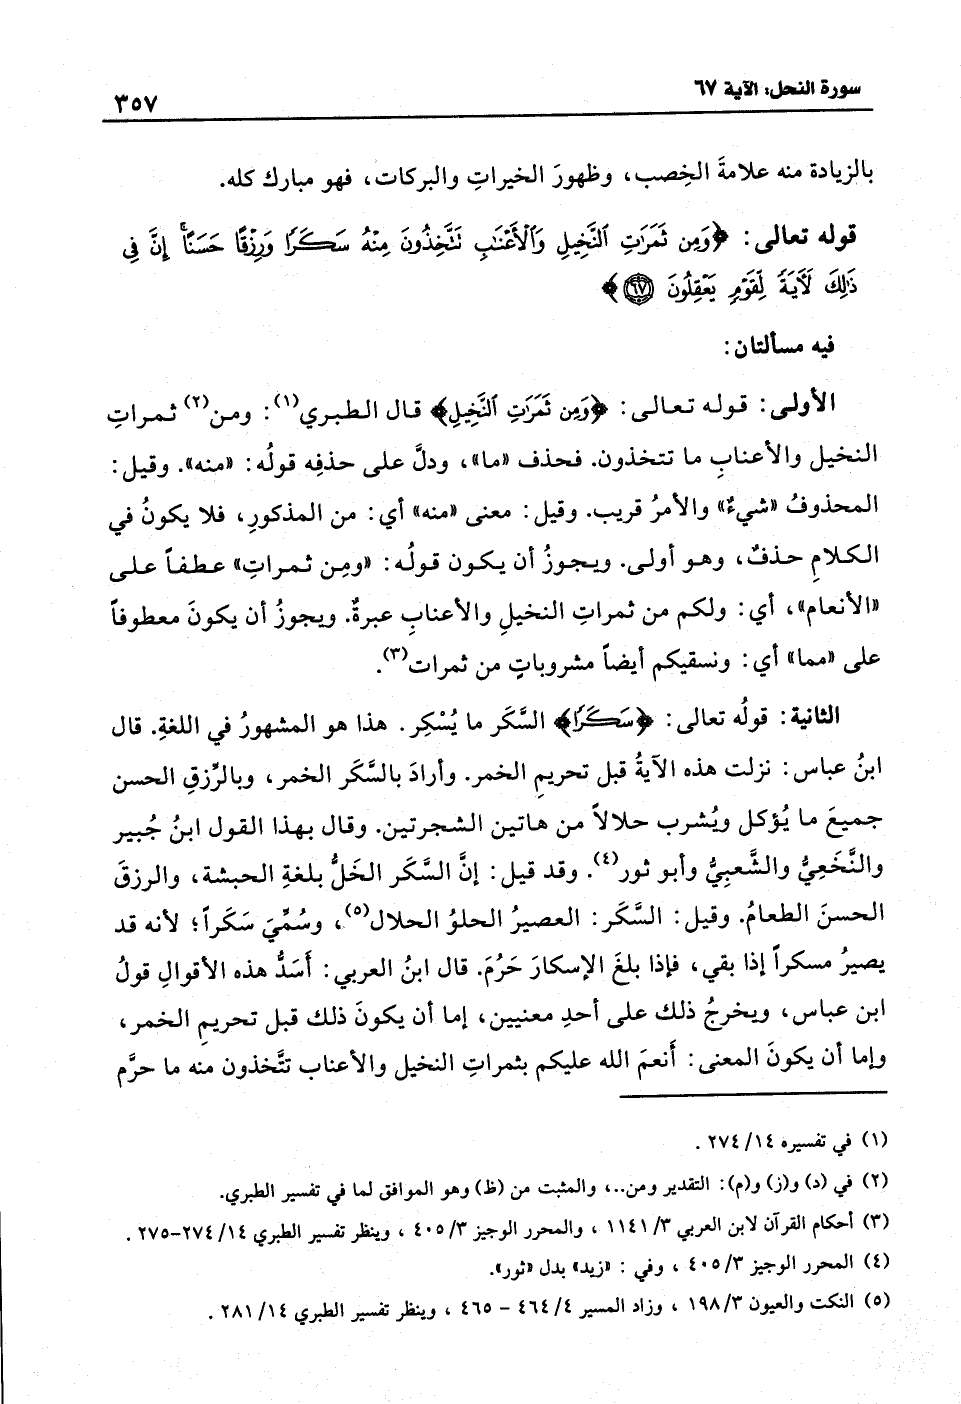 سورة النحل: الآية ٦٧
٣٥٧
بالزيادة منه علامةَ الخِصب، وظهورَ الخيراتِ والبركات، فهو مبارك كله.
قوله تعالى: ﴿وَمِن ثَمَرَٰتِ ٱلنَّخِيلِ وَٱلْأَعْنَٰبِ نَتَّخِذُونَ مِنْهُ سَكَرًا وَرِزْقًا حَسَنًا ۗ إِنَّ فِى
ذَٰلِكَ لَآيَةً لِّقَوْمٍ يَعْقِلُونَ ٦٧﴾
فيه مسألتان:
الأولى: قوله تعالى: ﴿وَمِن ثَمَرَٰتِ ٱلنَّخِيلِ﴾ قال الطبري(١): ومن(٢) ثمراتِ
النخيل والأعنابِ ما تتخذون. فحذف «ما»، ودلَّ على حذفِه قولُه: «منه». وقيل:
المحذوفُ «شيءٌ» والأمرُ قريب. وقيل: معنى «منه» أي: من المذكورِ، فلا يكونُ في
الكلامِ حذفٌ، وهو أولى. ويجوزُ أن يكون قولُه: «ومِن ثمراتِ» عطفاً على
«الأنعام»، أي: ولكم من ثمراتِ النخيلِ والأعنابِ عبرةٌ. ويجوزُ أن يكونَ معطوفاً
على «مما» أي: ونسقيكم أيضاً مشروباتٍ من ثمرات(٣).
الثانية: قولُه تعالى: ﴿سَكَرًا﴾ السَّكَر ما يُسْكِر. هذا هو المشهورُ في اللغةِ. قال
ابنُ عباس: نزلت هذه الآيةُ قبل تحريمِ الخمر. وأرادَ بالسَّكَر الخمر، وبالرِّزقِ الحسن
جميعَ ما يُؤكل ويُشرب حلالاً من هاتين الشجرتين. وقال بهذا القول ابنُ جُبير
والنَّخَعِيُّ والشَّعبِيُّ وأبو ثور(٤). وقد قيل: إنَّ السَّكَر الخَلُّ بلغةِ الحبشة، والرزقَ
الحسنَ الطعامُ. وقيل: السَّكَر: العصيرُ الحلوُ الحلال(٥)، وسُمِّيَ سَكَراً؛ لأنه قد
يصيرُ مسكراً إذا بقي، فإذا بلغَ الإسكارَ حَرُمَ. قال ابنُ العربي: أَسَدُّ هذه الأقوالِ قولُ
ابن عباس، ويخرجُ ذلك على أحدِ معنيين، إما أن يكونَ ذلك قبل تحريمِ الخمر،
وإما أن يكونَ المعنى: أَنعمَ الله عليكم بثمراتِ النخيل والأعناب تتَّخذون منه ما حرَّم
(١) في تفسيره ١٤/ ٢٧٤ .
(٢) في (د) و(ز) و(م): التقدير ومن..، والمثبت من (ظ) وهو الموافق لما في تفسير الطبري.
(٣) أحكام القرآن لابن العربي ٣/ ١١٤١ ، والمحرر الوجيز ٣/ ٤٠٥ ، وينظر تفسير الطبري ١٤/ ٢٧٤-٢٧٥ .
(٤) المحرر الوجيز ٣/ ٤٠٥ ، وفي : «زيد» بدل «ثور».
(٥) النكت والعيون ٣/ ١٩٨ ، وزاد المسير ٤/ ٤٦٤ - ٤٦٥ ، وينظر تفسير الطبري ١٤/ ٢٨١ .